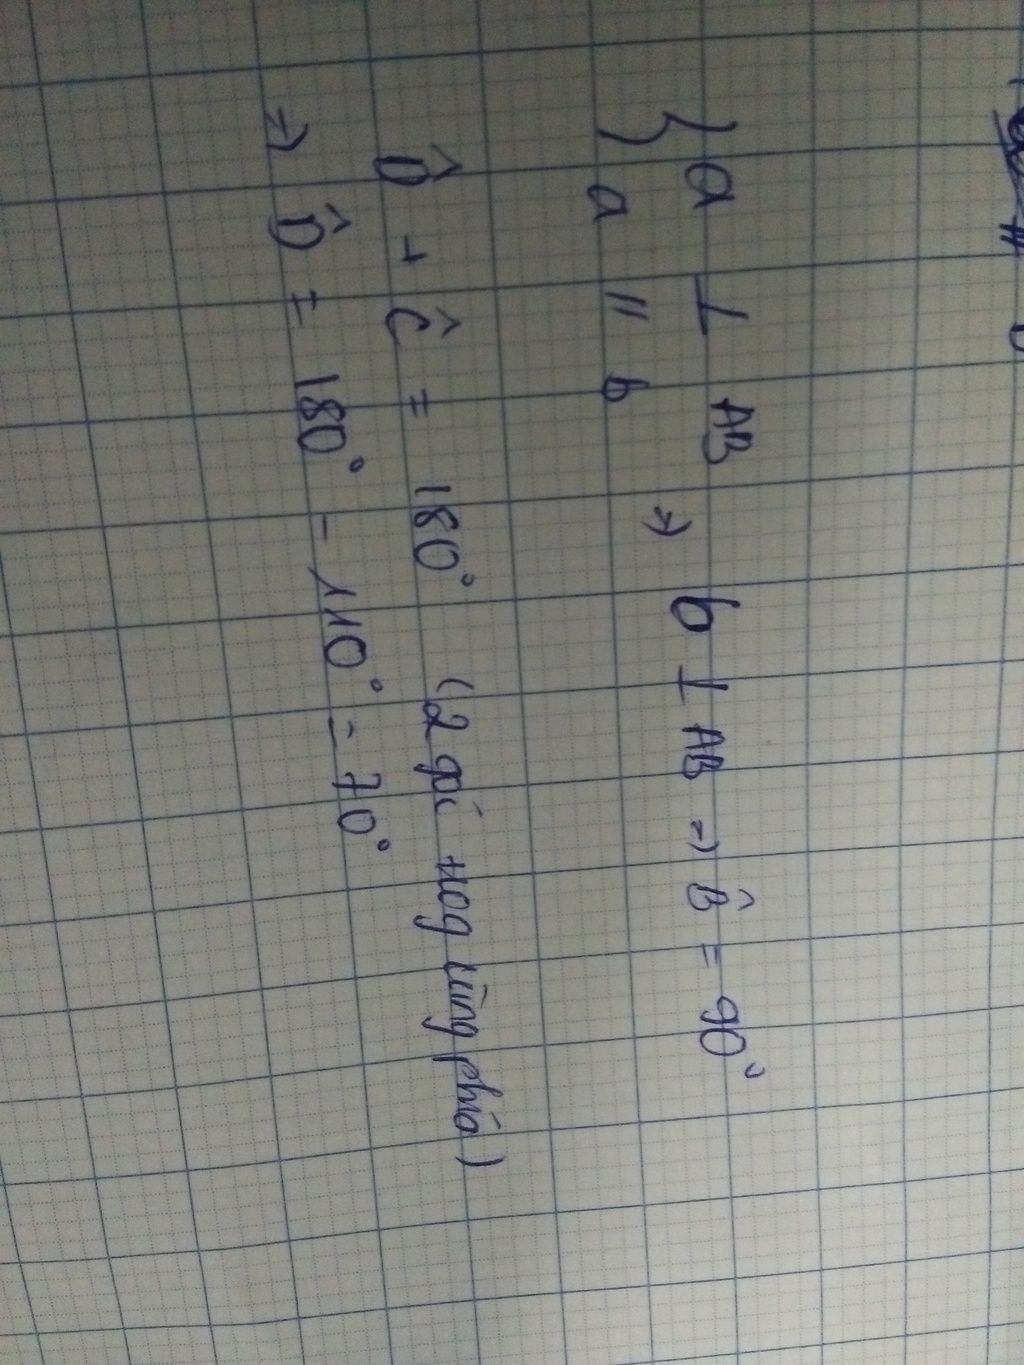 // b
{ a ⊥ AB
{ a // b ⇒ b ⊥ AB ⇒ B̂ = 90°
D̂ + Ĉ = 180° (2 góc trog cùng phía)
⇒ D̂ = 180° - 110° = 70°